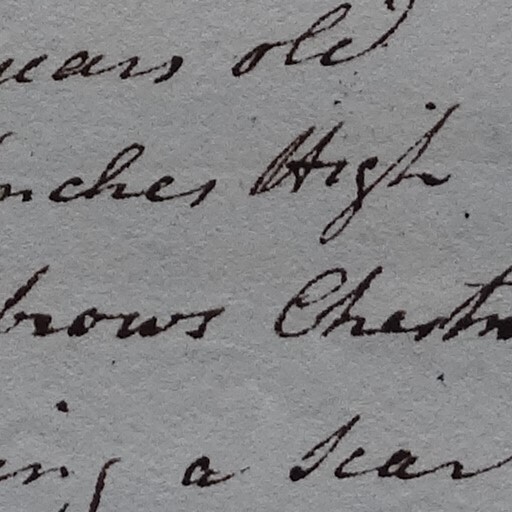 years old
Inches High
brows Chestn
ing a scar